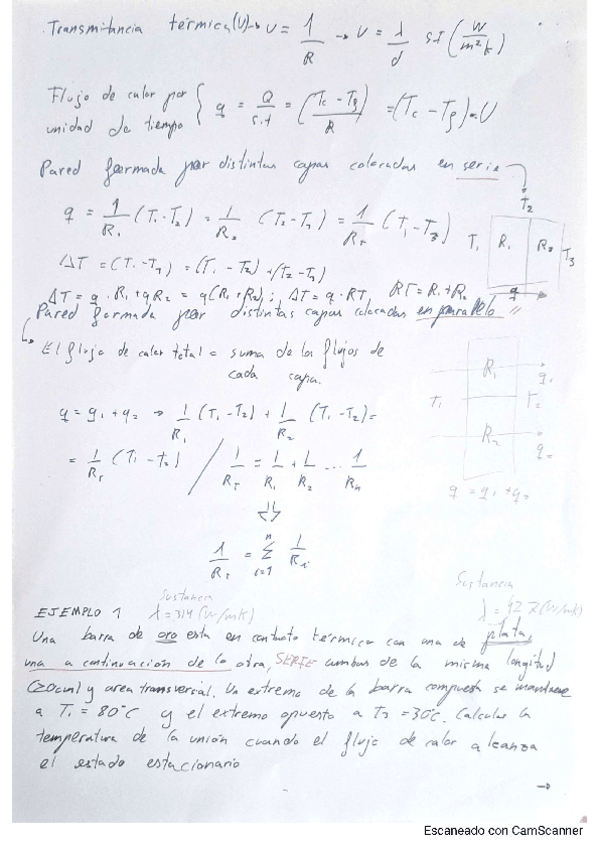 Transmitancia térmica (U) → U = 1/R → U = λ/d S.I (W/m²k)
Flujo de calor por unidad de tiempo { q = Q/s.t = (Tc - Tf)/R = (Tc - Tf)·U
Pared formada por distintas capas colocadas en serie
T2
q = 1/R1 (T1 - T2) = 1/R2 (T2 - T3) = 1/RT (T1 - T3)
T1 R1 R2 T3
ΔT = (T1 - T3) = (T1 - T2) + (T2 - T3)
ΔT = q · R1 + q R2 = q (R1 + R2) ; ΔT = q · RT RT = R1 + R2
q
Pared formada por distintas capas colocadas en paralelo
El flujo de calor total = suma de los flujos de
cada capa.
R1 q1
T1 T2
R2 q2
q = q1 + q2
q = q1 + q2 → 1/R1 (T1 - T2) + 1/R2 (T1 - T2) =
= 1/RT (T1 - T2) / 1/RT = 1/R1 + 1/R2 ... 1/Rn
⇓
= Σ n i=1 1/Ri
Sustancia
λ = 314 (W/mK)
Sustancia
λ = 427 (W/mK)
EJEMPLO 1
Una barra de oro esta en contacto térmico con una de plata,
una a continuación de la otra, SERIE ambas de la misma longitud
(20cm) y area transversal. Un extremo de la barra compuesta se mantiene
a T1 = 80°C y el extremo opuesto a = 30°C. Calcular la
temperatura de la unión cuando el flujo de calor alcanza
el estado estacionario
→
Escaneado con CamScanner